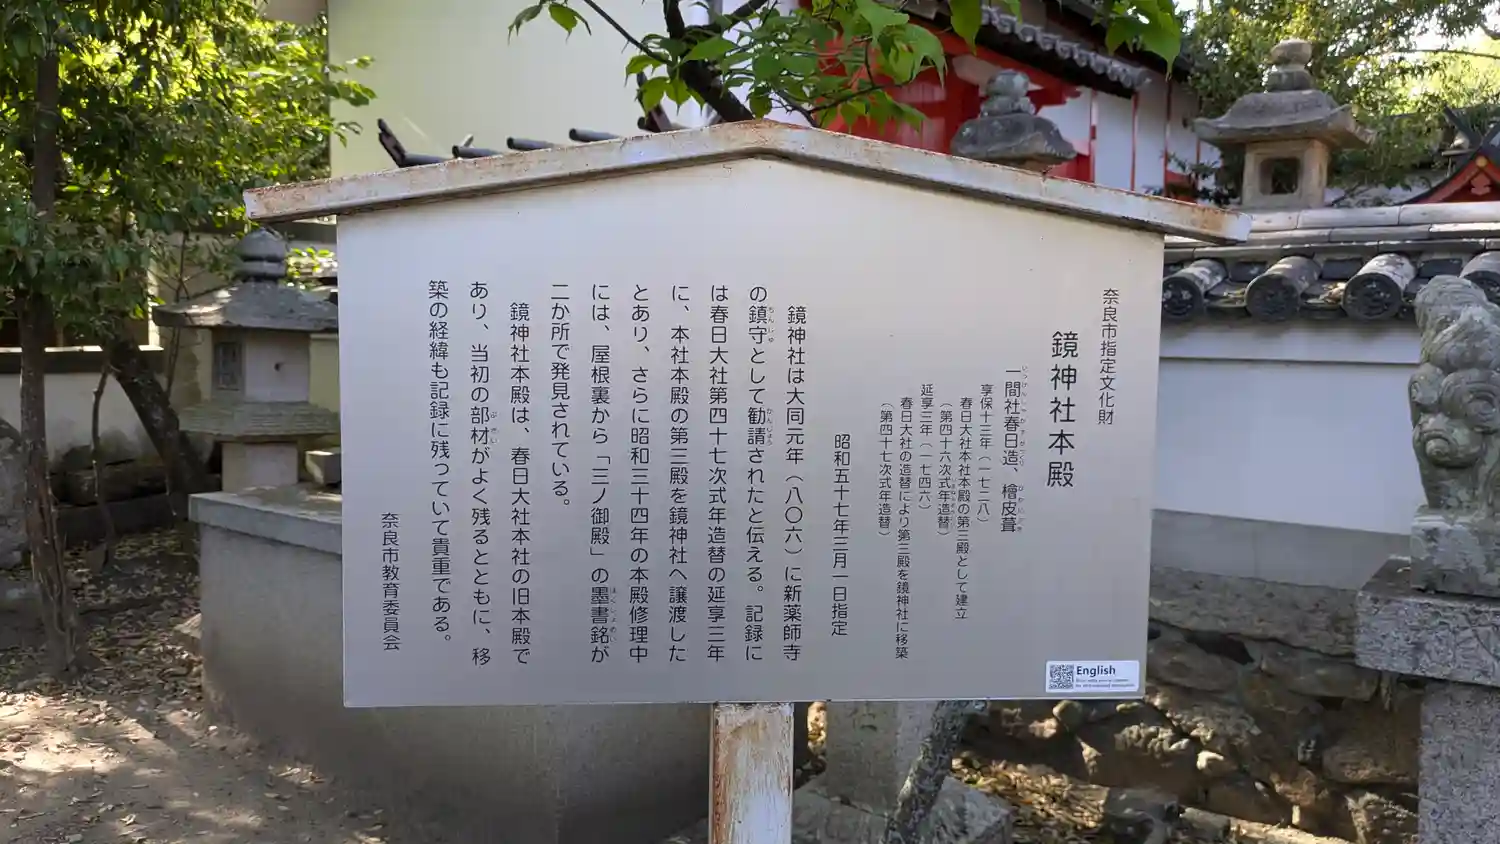 奈良市指定文化財
鏡神社本殿
一間社春日造、檜皮葺
享保十三年（一七二八）
春日大社本社本殿の第三殿として建立
（第四十六次式年造替）
延享三年（一七四六）
春日大社の造替により第三殿を鏡神社に移築
（第四十七次式年造替）
昭和五十七年三月一日指定
鏡神社は大同元年（八〇六）に新薬師寺
の鎮守として勧請されたと伝える。記録に
は春日大社第四十七次式年造替の延享三年
に、本社本殿の第三殿を鏡神社へ譲渡した
とあり、さらに昭和三十四年の本殿修理中
には、屋根裏から「三ノ御殿」の墨書銘が
二か所で発見されている。
鏡神社本殿は、春日大社本社の旧本殿で
あり、当初の部材がよく残るとともに、移
築の経緯も記録に残っていて貴重である。
奈良市教育委員会
English